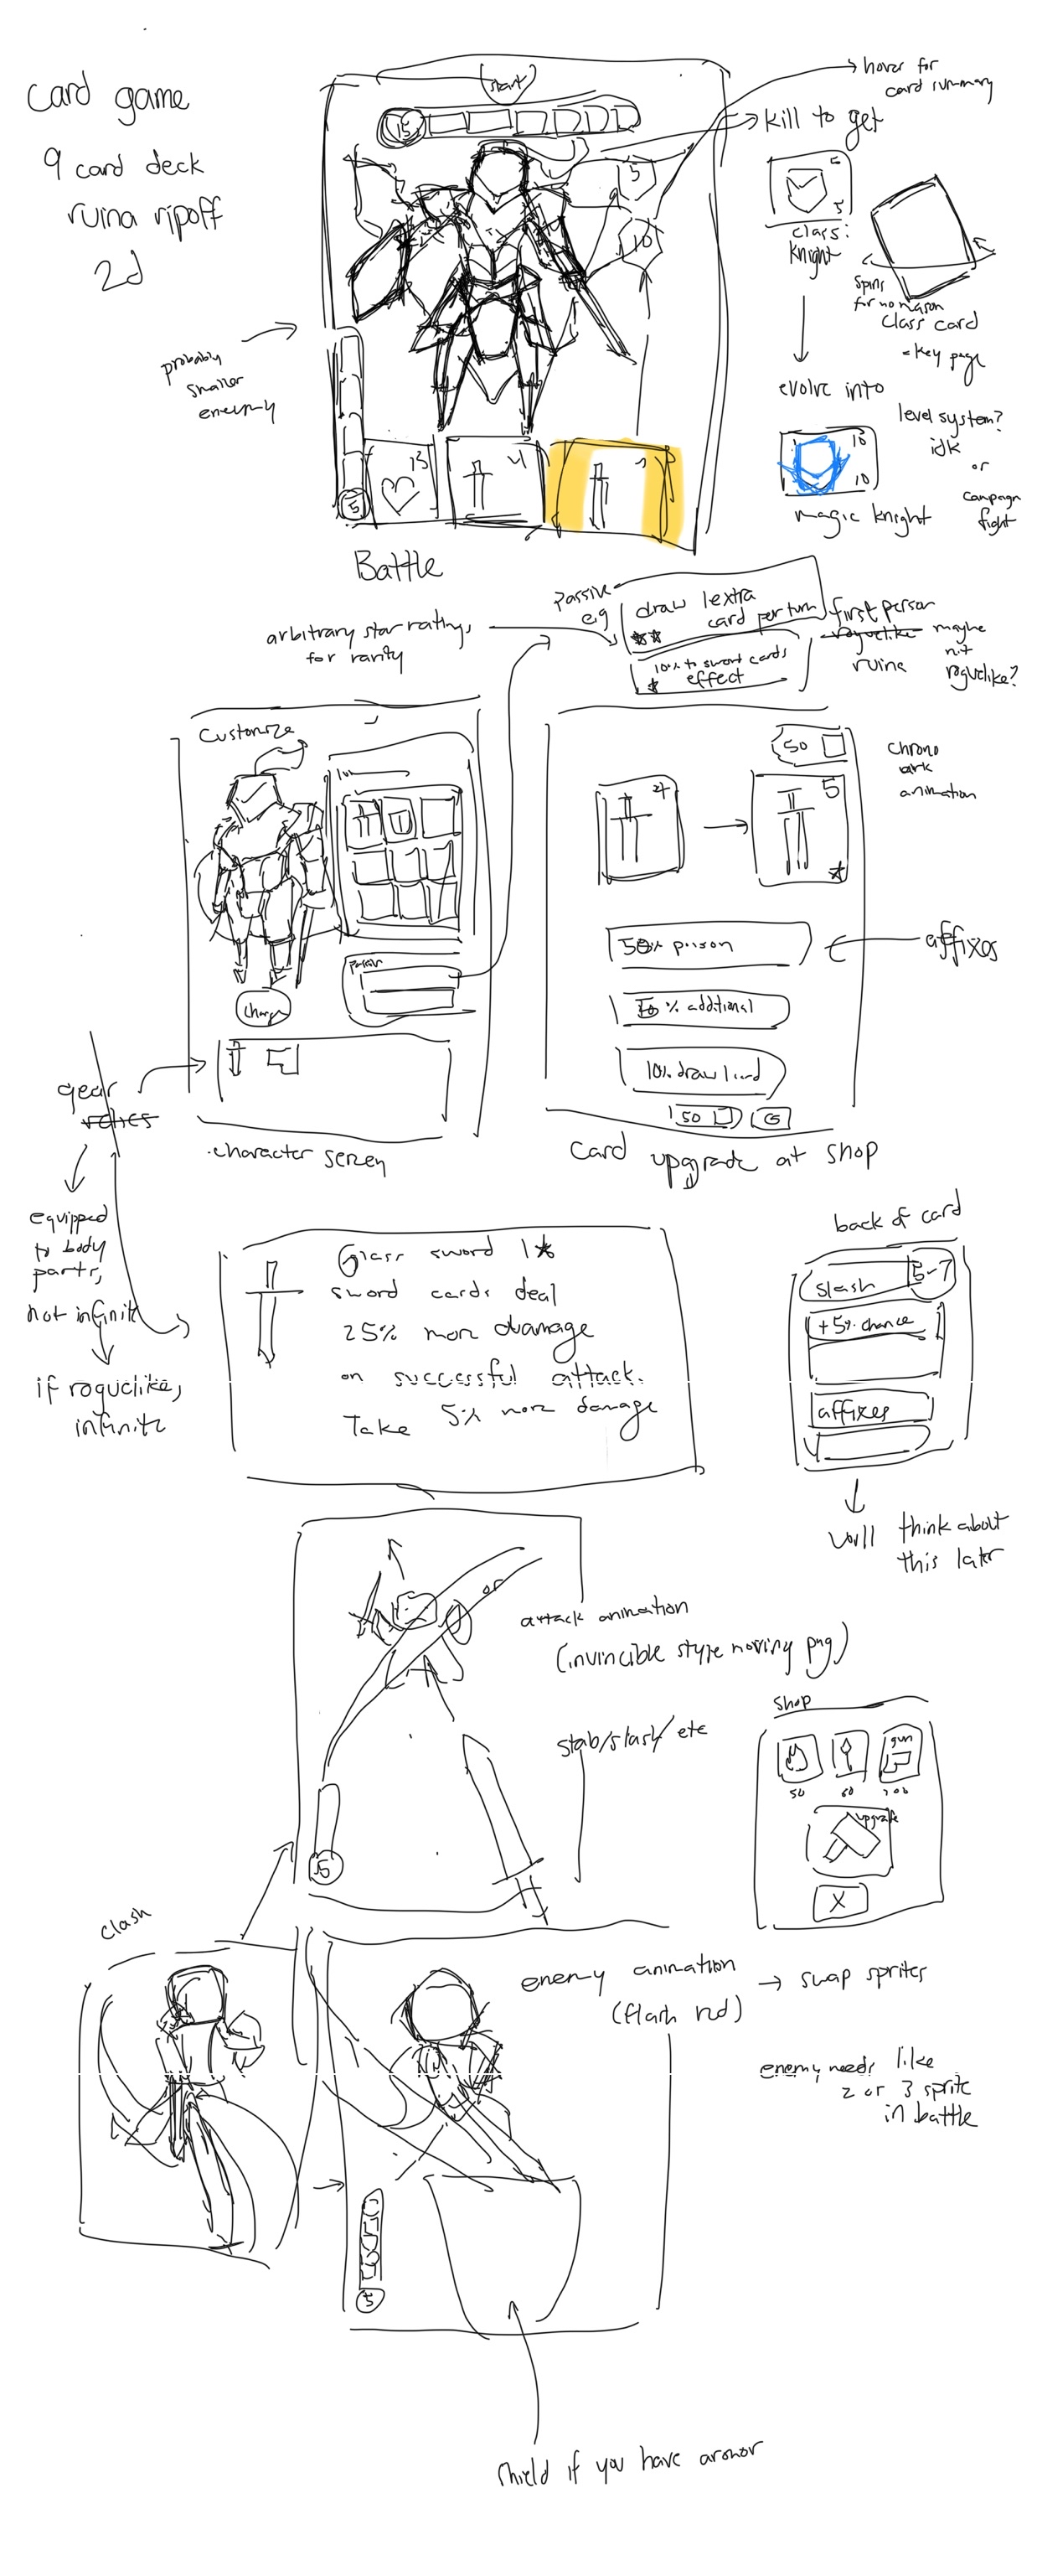 card game
9 card deck
ruina ripoff
2d
start
15
5
10
hover for
card summary
kill to get
5
class:
knight
spins
for no reason
class card
= key page
evolve into
level system?
idk
or
campaign
fight
10
10
magic knight
probably
smaller
enemy
13
4
5
Battle
arbitrary star rating,
for rarity
Passive
e.g
draw 1 extra
card per turn
10% to sword cards
effect
first person
roguelike
ruina
maybe
not
roguelike?
customize
passive
change
gear
relics
character screen
50
4
5
chrono
ark
animation
50% poison
affixes
10% additional
10% draw 1 card
50
card upgrade at shop
equipped
to body
parts,
not infinite
if roguelike,
infinite
Glass sword 1
sword cards deal
25% more damage
on successful attack.
Take 5% more damage
back of card
slash
5-7
+5% chance
affixes
will think about
this later
or
attack animation
(invincible style moving png)
stab/slash/etc
5
shop
gun
50
60
100
upgrade
X
clash
enemy animation
(flash red)
swap sprites
enemy needs like
2 or 3 sprite
in battle
5
shield if you have armor